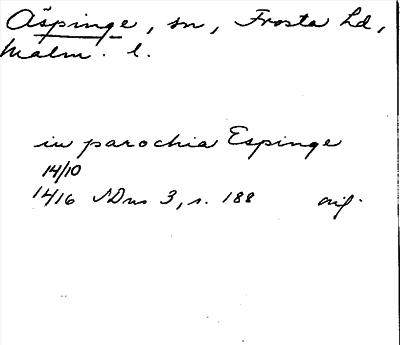 Äspinge, sn, Frosta hd,
Malm. l.
in parochia Espinge
14/10
1416 SDns 3, s. 188 orig.